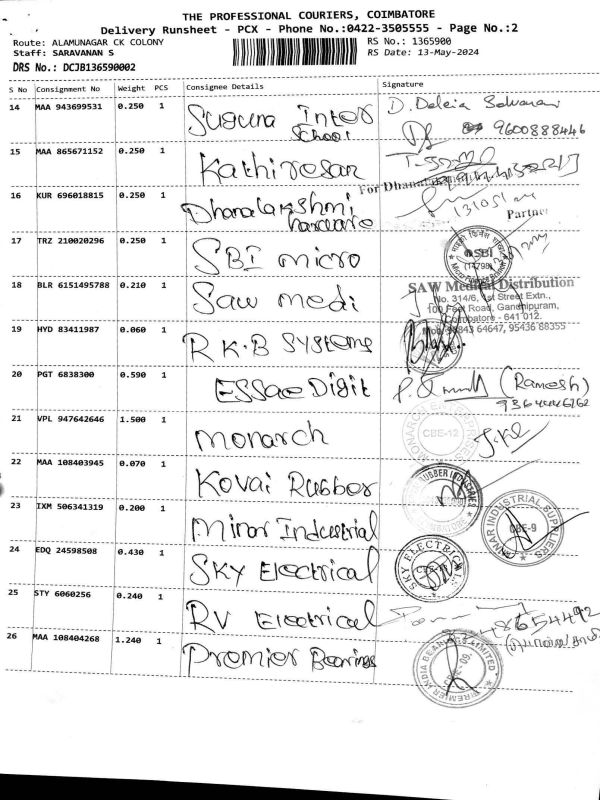 THE PROFESSIONAL COURIERS, COIMBATORE
Delivery Runsheet - PCX - Phone No.:0422-3505555 - Page No.:2
Route: ALAMUNAGAR CK COLONY
RS No.: 1365900
Staff: SARAVANAN S
RS Date: 13-May-2024
DRS No.: DCJB136590002
S No Consignment No Weight PCS Consignee Details Signature
14 MAA 943699531 0.250 1 Suguna Inter
School
9600888446
15 MAA 865671152 0.250 1 Kathiresan
For Dhanalakshmi
16 KUR 696018815 0.250 1 Dhanalakshmi
hardware
13/05/24
Partner
17 TRZ 210020296 0.250 1 SBI micro
SBI
18 BLR 6151495788 0.210 1 Saw medi
SAW Medical Distribution
No. 314/6, 1st Street Extn.,
100 Feet Road, Gandhipuram,
Coimbatore - 641 012.
64647, 95436 88355
19 HYD 83411987 0.060 1 R K.B Systems
20 PGT 6838300 0.590 1 Essae Digit
(Ramesh)
21 VPL 947642646 1.500 1 monarch
CBE-12
22 MAA 108403945 0.070 1 Kovai Rubber
RUBBER INDUSTRIES
23 IXM 506341319 0.200 1 Minar Industrial
MINAR INDUSTRIAL SUPPLIERS
CBE-9
24 EDQ 24598508 0.430 1 SKY Electrical
SKY ELECTRICAL
25 STY 6060256 0.240 1 RV Electrical
26 MAA 108404268 1.240 1 Premier Bearings
PREMIER INDIA BEARINGS LIMITED